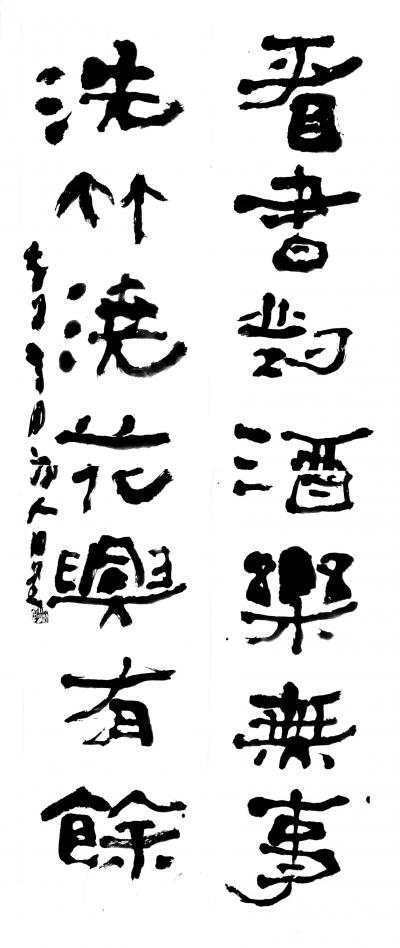 看書對酒樂無事
洗竹澆花興有餘